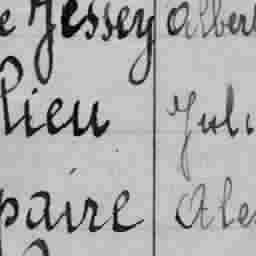 e Jessey Albert
lieu Juli
paire Ale